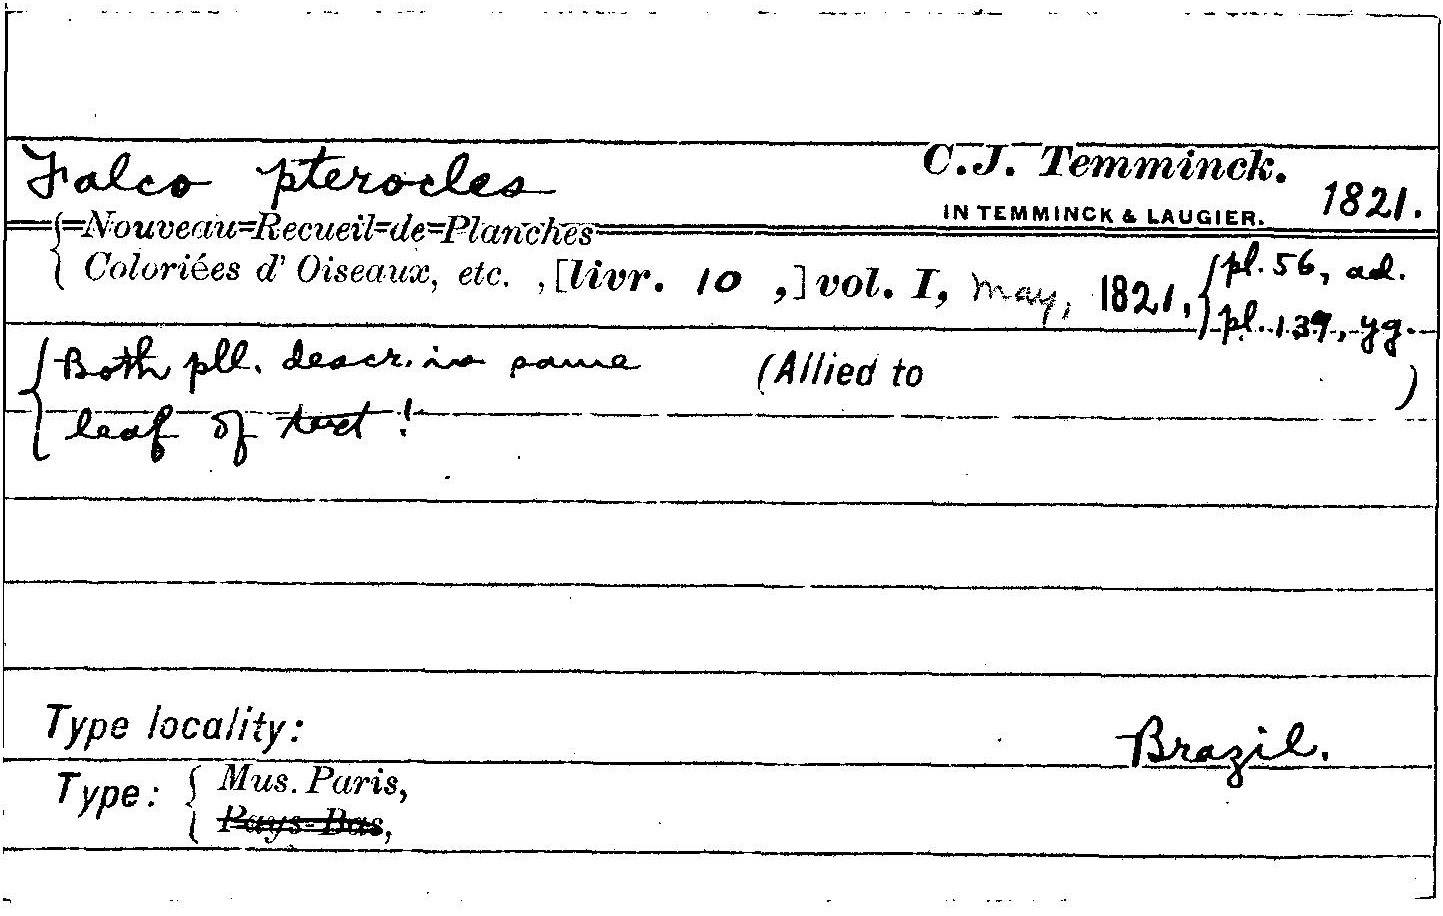 Falco pterocles C.J. Temminck.
IN TEMMINCK & LAUGIER. 1821.
Nouveau Recueil de Planches
Coloriées d' Oiseaux, etc. , [livr. 10 ,] vol. I, May, 1821, pl. 56, ad.
pl. 139, yg.
Both pll. descr. in same (Allied to )
leaf of text !
Type locality: Brazil.
Type: Mus. Paris,
Pays-Bas,